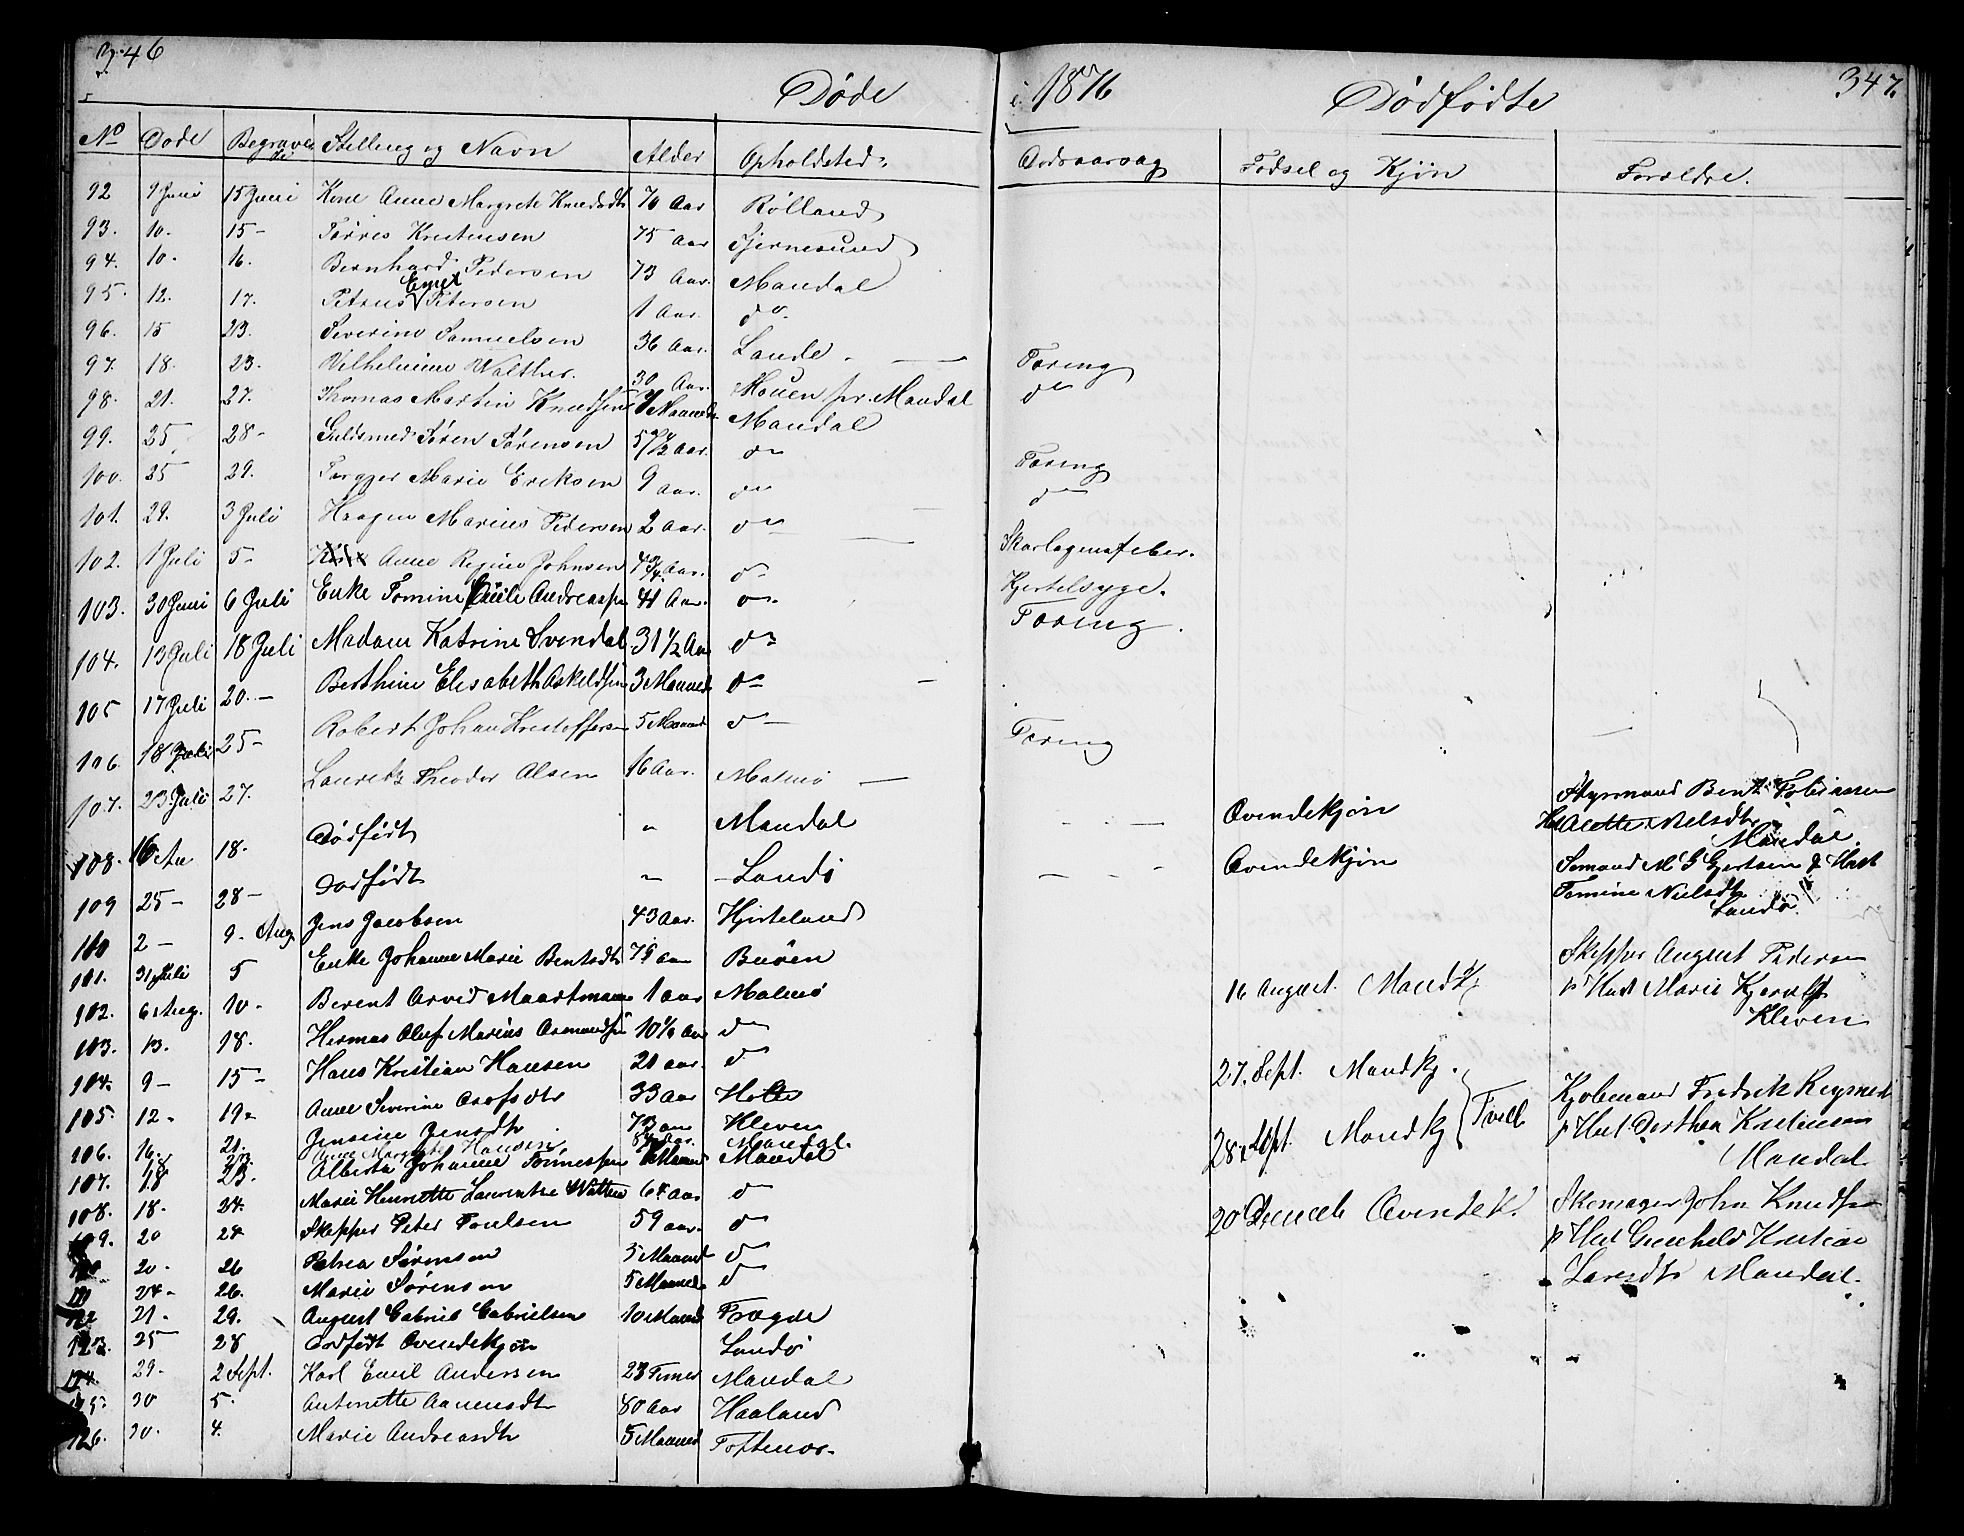 346
Døde
i 1876
Dødfødte
347.
No Døde Begravede Stilling og Navn Alder Opholdsted
Dødsaarsag Fødsel og Kjøn Forældre.
92 9 Juni 15 Juni Kone Anne Margrete Knudsdt 70 Aar Rølland
93. 10. 15 - Tørres Kristensen 75 Aar Tjernesund
94. 10. 16. Bernhard Pedersen 73 Aar. Mandal
Emil
95. 12. 17. Petrus Petersen 1 Aar. do
96. 15 23. Severine Samuelsen 36 Aar. Lande
97. 18. 23. Vilhelmine Walther. 30 Aar. Mouen pr. Mandal Tæring
98. 21. 27. Thomas Martin Knudsen Maaneder Mandal do
99. 25 28 - Guldsmed Søren Sørensen Aar. do
100. 25 29. Torgjer Marie Eriksen 9 Aar. do Tæring
101. 29. 3 Juli Haagen Marius Pedersen 2 Aar. do do
102. 1 Juli 5 - Anne Regine Johnsen Aar. do Skarlagensfeber.
103. 30 Juni 6 Juli Enke Tomine Andreassen 41 Aar. do Kjertelsyge.
104. 13 Juli 18 Juli Madam Katrine Svendal 31 1/2 Aar do Tæring.
105 17 Juli 20. - Berthine Elisabeth Askeldsen 3 Maaned do
106. 18 Juli 25 - Robert Johan Kristoffersen 5 Maaned do Tæring
107. 23 Juli 27. Lauritz Theodor Olsen 16 Aar. Malmø
108. 16 18. Dødfødt " Mandal Qvindekjøn
Styrmand Bent Tobiasen
Alette Nielsdtr
Mandal.
109 25 - 28 - Dødfødt " Landø Qvindekjøn
Sømand M G Gjertsen & Hust
Tomine Nielsdtr
Landø.
100 2 - 9. Aug. Jens Jacobsen 43 Aar. Hjerteland
101. 31 Juli 5 Enke Johanne Marie Bentsdtr Aar Buøen
102. 6 Aug. 10. Berent Arvid Maartmann 1 aar Malmø
16 August. Mandkj
Skipper August Pedersen
& Hust Marie Kjerulf
Kleven
103. 13. 18. Hermas Oluf Marius Osmundsen 10 1/2 Aar do
104. 9 - 15 - Hans Kristian Hansen 21 aar. do
105. 12 - 19 - Anne Severine Olofsdtr 33 Aar Holte
27. Sept. Mandkj.
28. Sept. Mandkj Tvill
Kjøbmand Fredrik Reymert
& Hust Dorthea Kristensen
Mandal
106. 16. 21. Jensine Jensdtr 73 aar Kleven
Anne Margrethe Hansen Aar. Mandal.
107. 18 23. Alberta Johanne Tønnessen Maaned Mandal
108. 18. 24. Marie Henriette Laurentze Watten 64 Aar do
20 Decemb Qvindek.
Skomager John Knudsen
& Hust Gunhild Kristine
Larsdtr Mandal.
109. 20 24 Skipper Peter Poulsen 59 aar. do
20. 26 Petrea Sørensen 5 Maaned do
24 - 26. Marie Sørensen 5 Maaned do
21 - 29. August Gabriel Gabrielsen 10 Maaned Frøgne
123. 25 28 Dødfødt Qvindekjøn Landø
124. 29. 2 Sept. Karl Emil Andersen 23 Timer Mandal
125 30 5. Antonette Aanensdtr 80 Aar Haaland
126. 30. 4. Marie Andreasdtr 5 Maaned Toftenes